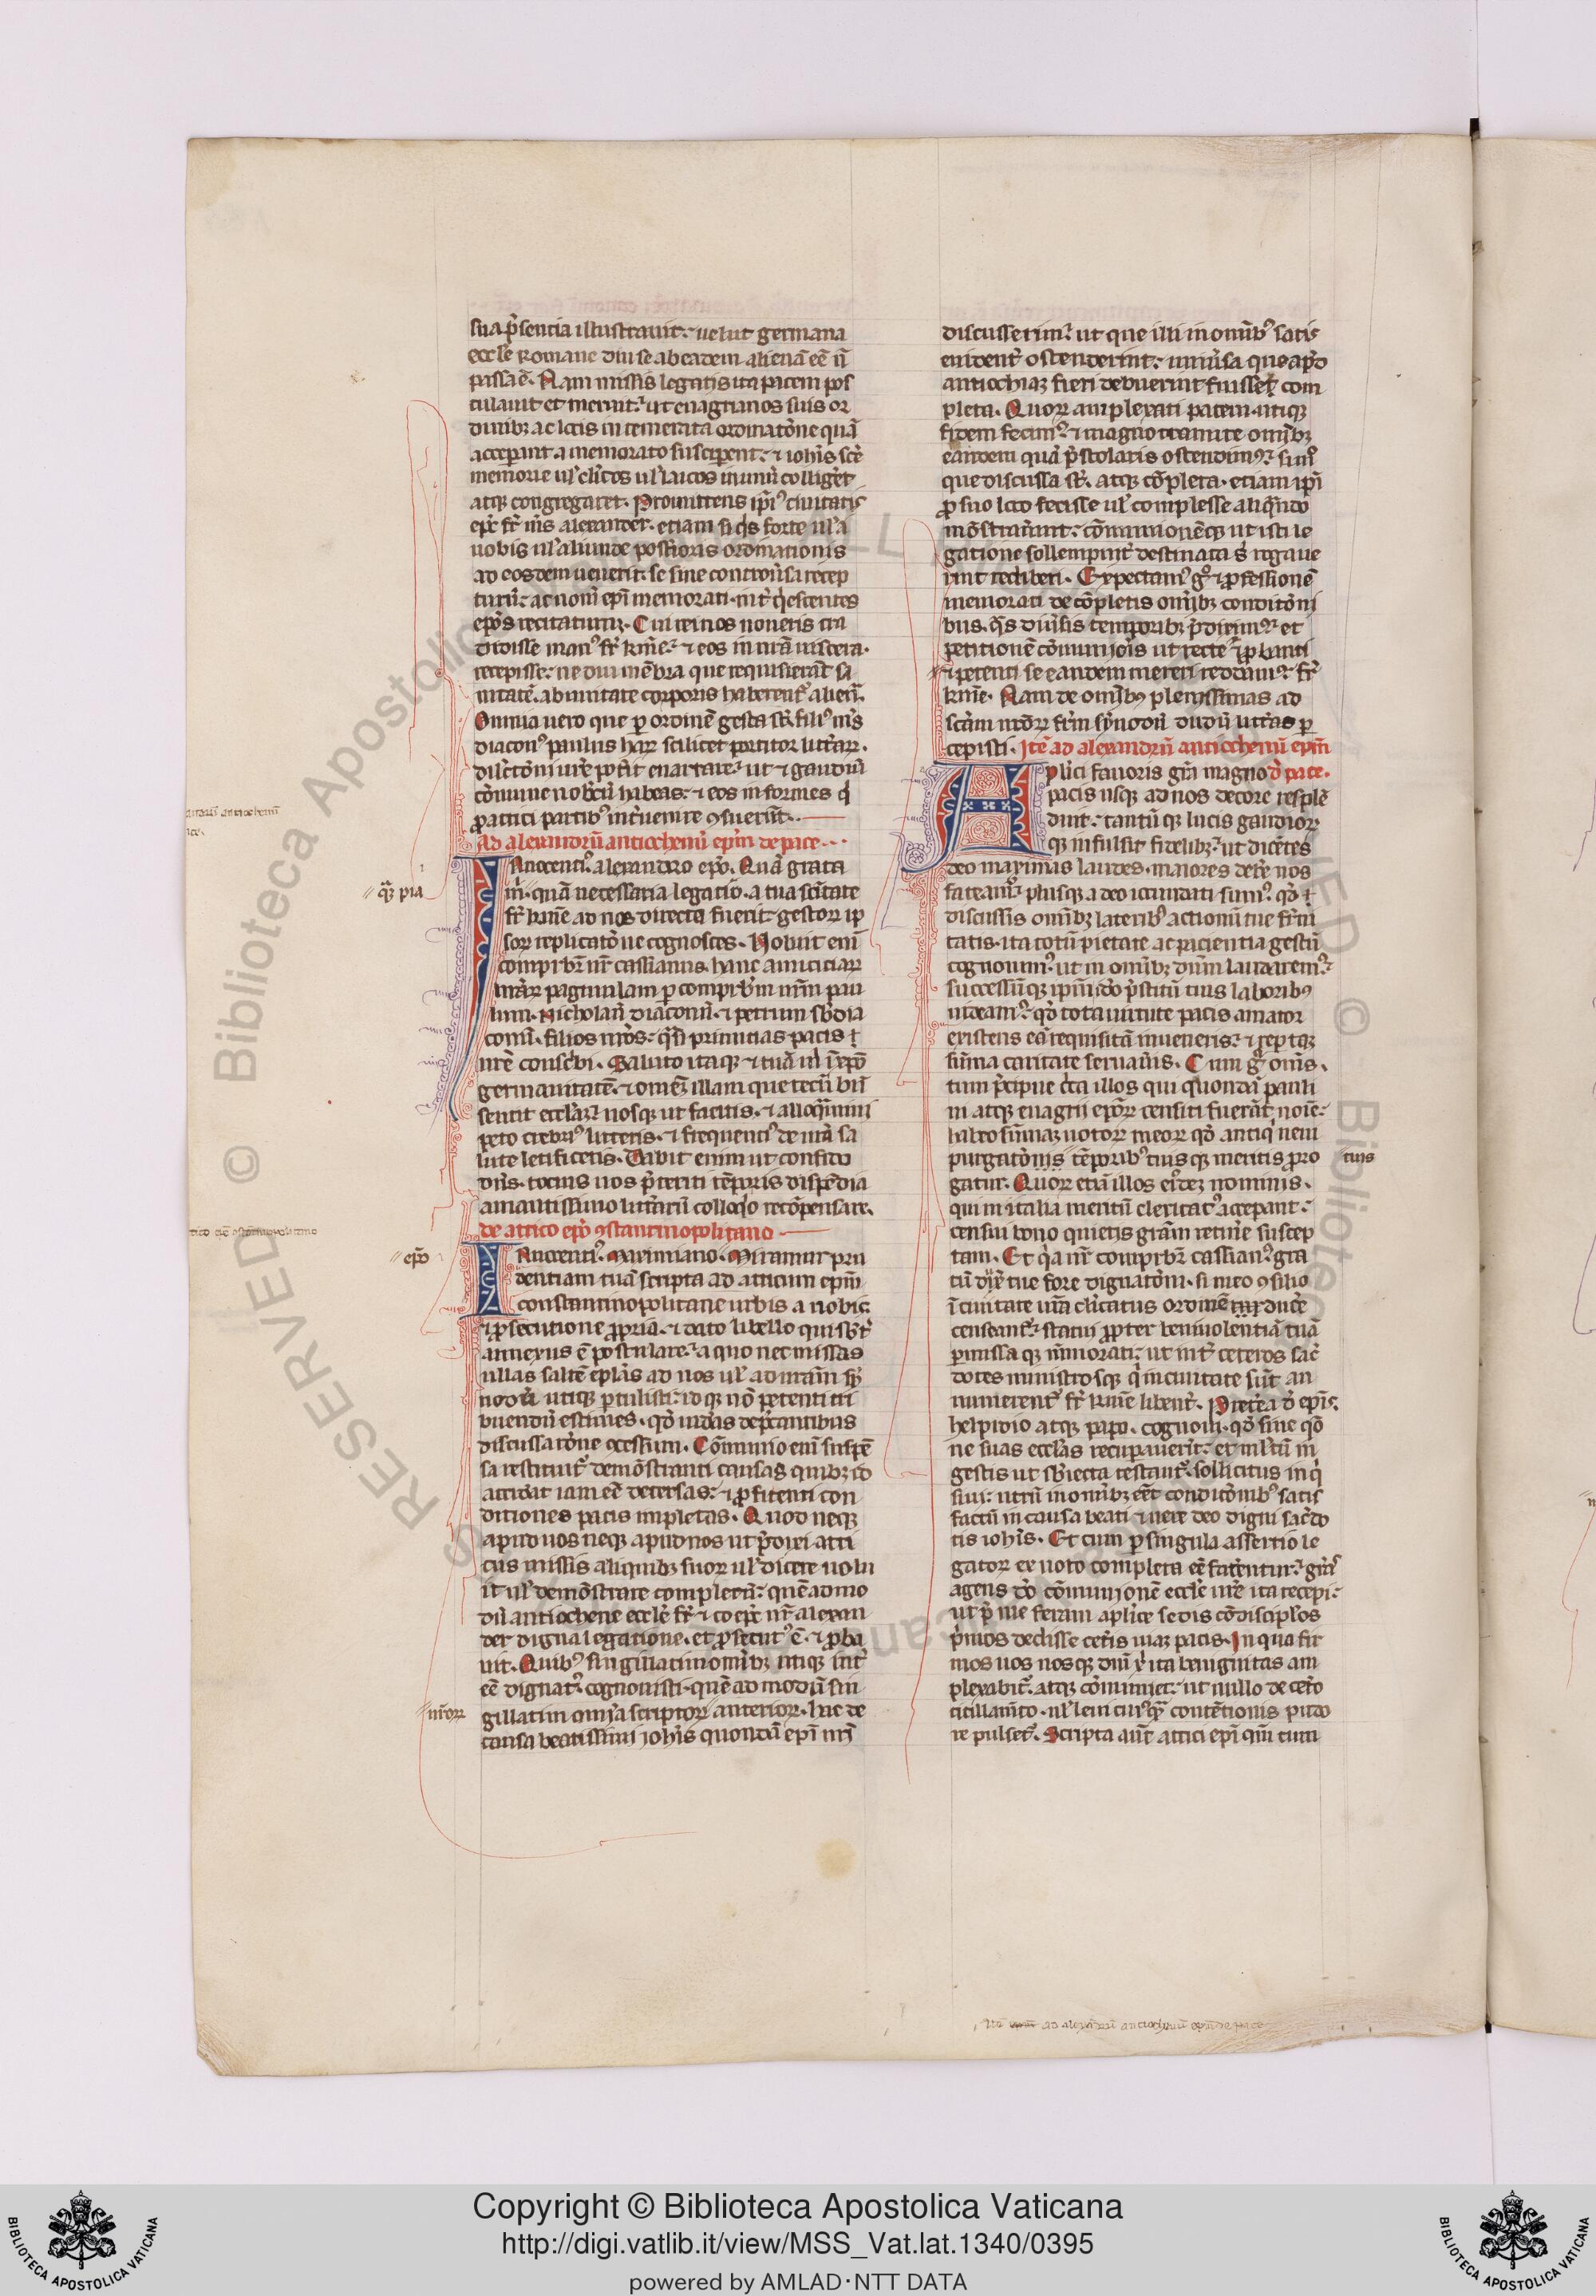 sua p̄sentia illustrauit. uelut germana
eccl̄e Romane diu se ab eadem alienā eē ñ
passa ē. Nam missis legatis ita pacem pos
tulauit et meruit. ut euagrianos suis or
dinibꝫ ac locis intemerata ordinatōne quā
acceperant a memorato susciperent. ⁊ ioh̄is sc̄e
memorie ul̓ cl̓icos ul̓ laicos in unū colligeret
atqꝫ congregaret. Promittens ip̄iꝰ ciuitatis
ep̄c fr̄ nr̄s alexander. etiam si q̓s forte ul̓ a
uobis ul̓ aliunde post̓ioris ordinationis
ad eosdem uenerit. se sine controu̓sia recep
turū. ac nom̄ ep̄i memorati. int̓ q̓escentes
ep̄os recitaturū. Cui rei nos noueris tra
didisse manꝰ fr̄ kmē. ⁊ eos in nr̄a uiscera.
recepisse. ne diu mēbra que requisierāt sa
nitatē. ab unitate corporis haberentᷣ aliena.
Omnia uero que per ordinē gesta st̄. filiꝰ nr̄s
diaconꝰ paulus haꝝ scilicet portitor litt̓arꝝ.
dil̓ctōni ur̄e pot̓it enarrare. ut ⁊ gaudiū
cōmune nobcū habeas. ⁊ eos informes q̓
ꝓ attici partibꝰ int̓uenire ꝯsuerūt.
Ad alexandrū antiochenū ep̄m de pace.
INnocentiꝰ alexandro ep̄o. Quā grata
m̓. quā necessaria legatio. a tua sc̄itate
fr̄ kmē ad nos directa fuerit. gestoꝝ ip̄
soꝝ replicatōne cognosces. Nobiit enī
compr̄br̄ nr̄ cassianus. hanc amiciciaꝝ
nr̄aꝝ paginulam per compr̄br̄m nr̄m pau
lum. Nicholaū diaconū. ⁊ petrum sb̓dia
conū. filios nr̄os. q̓si primitias pacis ⁊
nr̄e conscr̓bi. Saluto itaqꝫ ⁊ tuā in x̄po
germanitatē. ⁊ omnē illam que tecū bn̄
sentit eccl̄iaꝫ. nosqꝫ ut facitis. ⁊ alloq̓mini
peto crebriꝰ litteris. ⁊ frequentiꝰ de ur̄a sa
lute letificetis. Dabit enim ut confido
dn̄s. tocius uos p̄teriti tēporis dispēdia
amantissimo litt̓arū colloq̓o recōpensare.
de attico ep̄o ꝯstantinopolitano
INnocentiꝰ. Maximiano. Miramur pru
dentiam tuā scripta ad atticum ep̄m
constantinopolitane urbis a nobis
⁊ ꝓsecutione ꝓpria. ⁊ dato libello qui sb̓t̓
annexus ē postulare. a quo nec missas
ullas saltē epl̄as ad nos ul̓ ad nr̄am sy
nodū utiqꝫ pertulisti. idqꝫ nō petenti tri
buendū estimes. qd̓ uerbis dep̄cantibus
discussa rōne ꝯcessum. Cōmunio enī suspē
sa restituitᷣ demōstranti causas quibꝫ id
acciderat iam eē detersas. ⁊ ꝓfitenti con
ditiones pacis impletas. Quod neqꝫ
apud uos neqꝫ apud nos ut p̄dixi atti
cus missis aliquibꝫ suoꝝ ul̓ dicere uolu
it ul̓ demōstrare completū. quēadmo
dū antiochene eccl̄e fr̄ ⁊ coep̄c nr̄ alexan
der digna legatione. et ꝓsecutꝰ ē. ⁊ ꝓba
uit. Quibꝰ singulatim omībꝫ utiqꝫ int̓
eē dignatꝰ cognouisti. quēadmodū sin
gillatim omīa scriptoꝝ anterioꝝ. huc de
causa beatissimi ioh̄is quondā ep̄i nr̄i
discusserimꝰ. ut que illi in omībꝰ satis
euident̓ ostenderint. uniu̓sa que apᷣd
antiochiaꝫ fieri debuerint fuissēt com
pleta. Quoꝝ amplexati pacem. utiqꝫ
fidem fecimꝰ. ⁊ magno tramite omībꝫ
eandem quā p̄stolaris ostendimꝰ. si unꝰ
que discussa st̄. atqꝫ cōpleta. etiam ip̄i
ꝓ suo loco fecisse ul̓ complesse aliq̓ndo
mōstrau̓int. cōmunionēqꝫ ut isti le
gatione sollempnit̓ destinata s̄ rogaue
rint rediberi. Expectamꝰ gͦ ⁊ ꝓfessionē
memorati de cōpletis omībꝫ conditōni
bus. q̓s diu̓sis temporibꝫ p̄diximꝰ. et
petitionē cōmunionis ut recte ⁊ ꝓbanti
⁊ petenti se eandem mereri reddamꝰ. fr̄
kmē. Nam de omībꝰ plenissimas ad
sc̄am ur̄oꝝ fr̄m synodū dudū litt̓as per
cepisti. Itē ad alexandrū antiochenū ep̄m
APl̓ici fauoris gr̄a magno d̓ pace.
pacis usqꝫ ad nos decore resplē
duit. tantūqꝫ lucis gaudioꝝ
qꝫ infulsit fidelibꝫ. ut dicētes
deo maximas laudes. maiores deb̓e nos
fateamᷣ. plusqꝫ a deo iocundati sumꝰ. qd̓ ⁊
discussis omībꝫ lateribꝰ actionū tue fr̄ni
tatis. ita totū pietate ac pacientia gestū
cognouimꝰ. ut in omībꝫ dn̄m laudaremꝰ.
successūqꝫ ipm̄ ido p̄stitū tuis laboribꝰ
uideamꝰ. qd̓ tota uirtute pacis amator
existens eā requisitā inueneris. ⁊ reptaꝫ
sūma caritate seruau̓is. Cum gͦ omīs.
tum p̄cipue cͥca illos qui quondā pauli
ni atqꝫ euagrii ep̄oꝝ censiti fuerāt noīe.
habeo sūmaꝫ uotoꝝ meoꝝ qd̓ antiqͥ neui
purgatōnis tēporibꝰ tuisqꝫ meritis ꝓro
gatur. Quoꝝ etiā illos eiꝰdeꝫ nominis.
qui in italia meritū clericatꝰ acceperant.
censui bono quietis gr̄am retin̓e suscep
tam. Et q̓a nr̄ compr̄br̄ cassianꝰ gra
tū dix̓ tue fore dignatōni. si meo ꝯsilio
ī ciuitate ur̄a cl̓icatus ordinē duc̓e
censeantᷣ. statui ꝓpter beniuolentiā tuā
permissaqꝫ memorati. ut int̓ ceteros sac̓
dotes ministrosqꝫ qͥ in ciuitate sūt an
numerentᷣ fr̄ kmē libent̓. Pret̓ea d̓ ep̄is
helpidio atqꝫ papo. cognoui. qd̓ sine q̄o
ne suas eccl̄as recuperauerit. et ml̓tū in
gestis ut sb̓iecta testantᷣ. sollicitus inqͥ
siui. utrū in omībꝫ eēt conditōibꝰ satis
factū in causa beati ⁊ uere deo digni sac̓do
tis ioh̄is. Et cum per singula assertio le
gatoꝝ ex uoto completa eē fat̓entur. gr̄as
agens dō cōmunionē eccl̄e ur̄e ita recepi.
ut p̄ me feram apl̓ice sedis cōdiscipl̓os
p̓mos dedisse cet̓is uiaꝫ pacis. In qua fir
mos uos nosqꝫ diui xͥ ita benignitas am
plexabitᷣ. atqꝫ cōmuniet. ut nullo de cet̓o
ticillam̄to. ul̓ leui cuiꝰqꝫ contētionis pudo
re pulsetᷣ. Scripta aut̄ attici ep̄i qm̄ cum
q̓ꝫ pia
ep̄o
nr̄oꝝ
tuis
Copyright © Biblioteca Apostolica Vaticana
http://digi.vatlib.it/view/MSS_Vat.lat.1340/0395
powered by AMLAD·NTT DATA
BIBLIOTECA APOSTOLICA VATICANA
BIBLIOTECA APOSTOLICA VATICANA